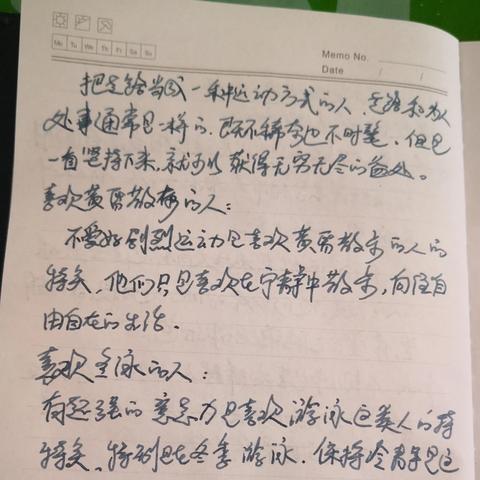 Mo Tu We Th Fr Sa Su
Memo No.
Date / /
把走路当成一种运动方式的人,走路和为人
处事通常是一样的.既不稀奇也不时髦.但是
一直坚持下来.就可以获得无穷无尽的益处。
喜欢黄昏散步的人:
不爱好剧烈运动是喜欢黄昏散步的人的
特点.他们只是喜欢在宁静中散步,向往自
由自在的生活.
喜欢游泳的人:
有超强的意志力是喜欢游泳这类人的特
特点、特别是在冬季游泳.保持冷静是这